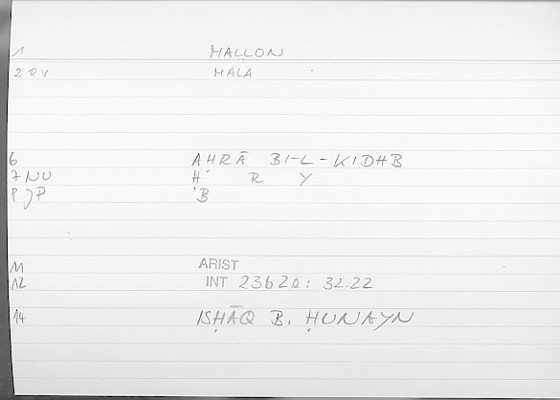 1 MALLON
2 RV MALA
6 AḤRĀ BI-L-KIDHB
7 NU Ḥ R Y
8 JP 'B
11 ARIST
12 INT 23b20: 32.22
14 ISḤĀQ B. ḤUNAYN